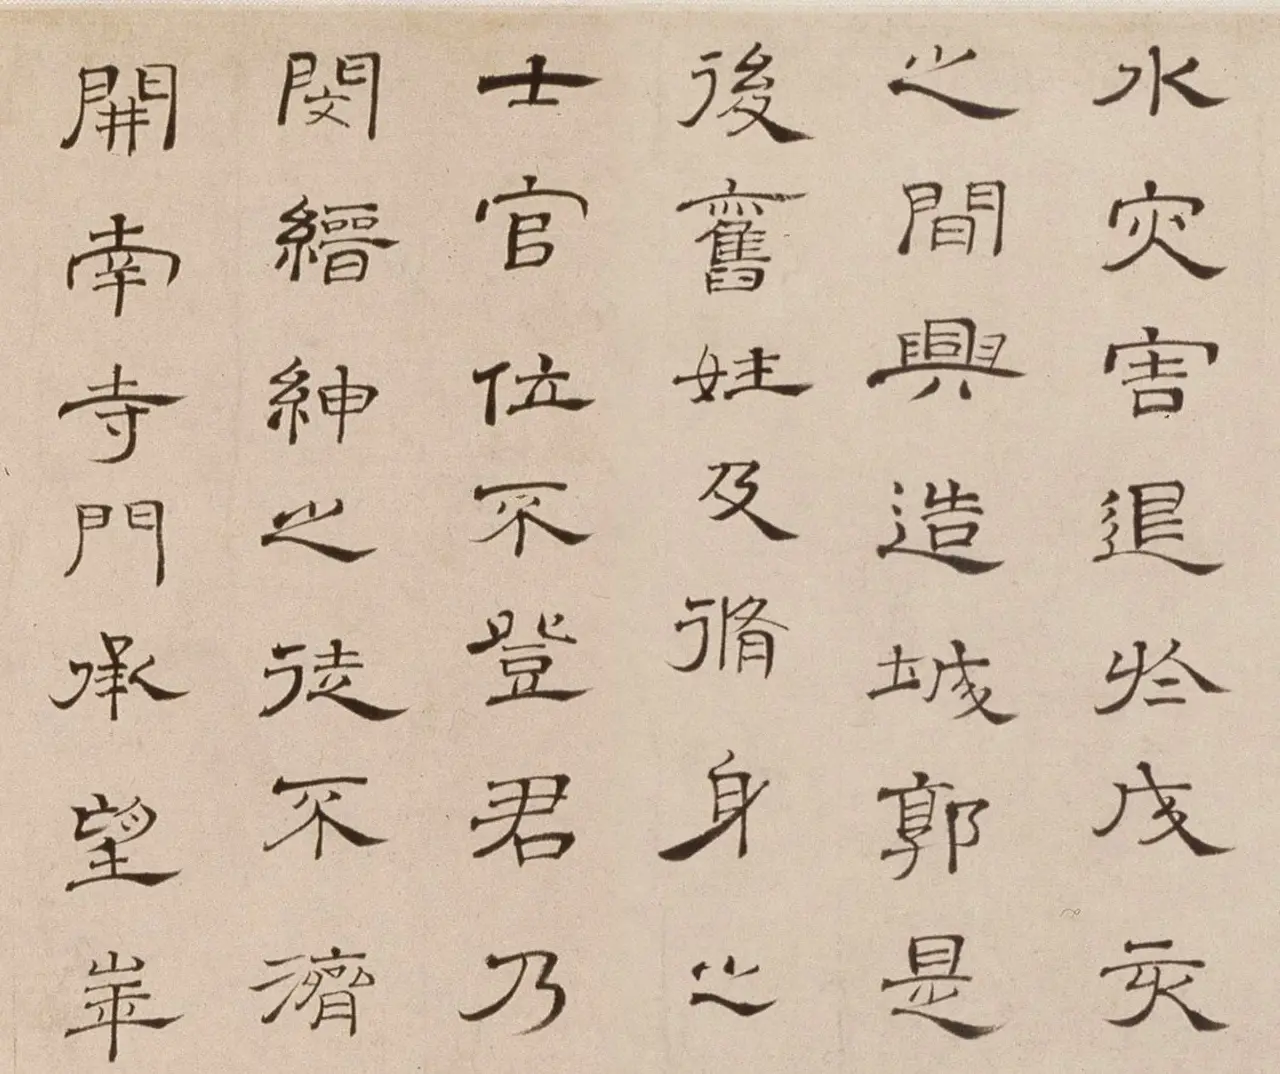 水灾害退於戊亥
之間興造城郭是
後舊姓及脩身之
士官位不登君乃
閔縉紳之徒不濟
開南寺門承望華